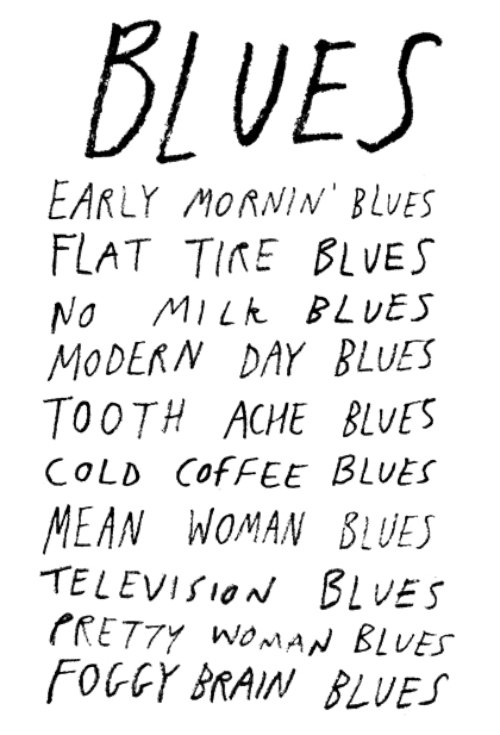 BLUES
EARLY MORNIN' BLUES
FLAT TIRE BLUES
NO MILK BLUES
MODERN DAY BLUES
TOOTH ACHE BLUES
COLD COFFEE BLUES
MEAN WOMAN BLUES
TELEVISION BLUES
PRETTY WOMAN BLUES
FOGGY BRAIN BLUES